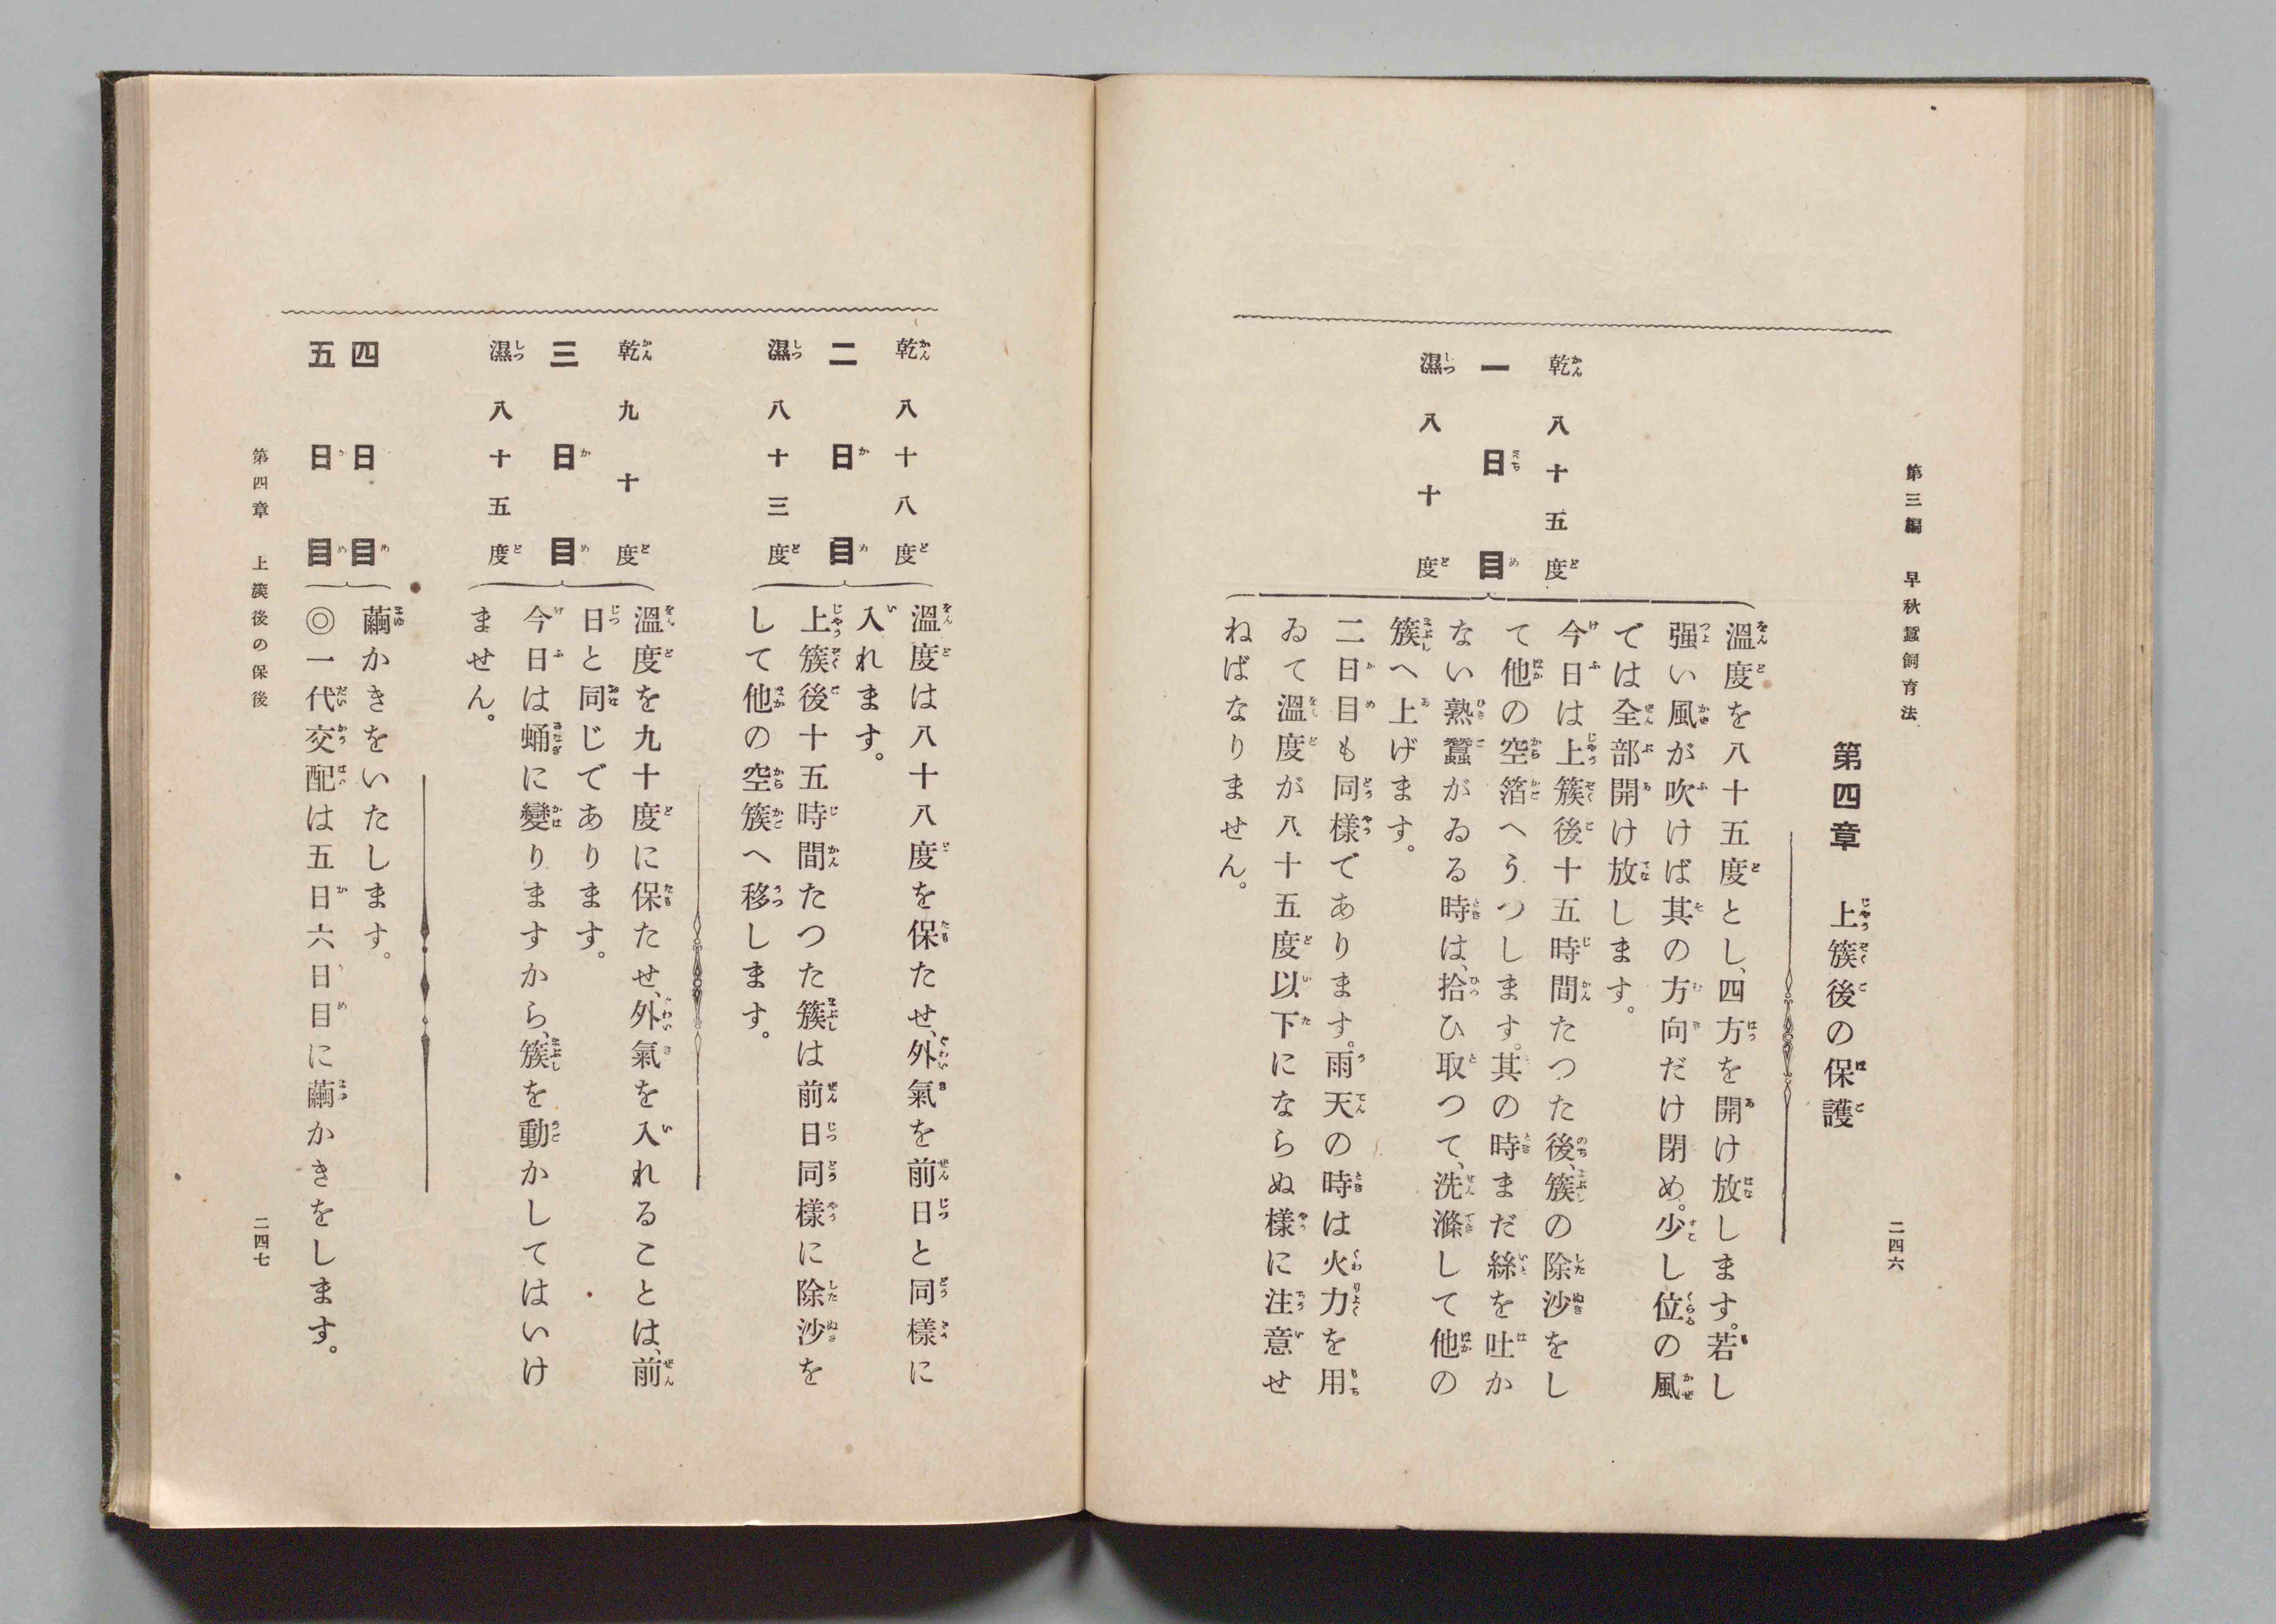 第三編　早秋蠶飼育法
二四六
第四章　上簇後の保護
乾八十五度
一日目
濕八十度
溫度を八十五度とし、四方を開け放します。若し
强い風が吹けば其の方向だけ閉め。少し位の風
では全部開け放しします。
今日は上簇後十五時間たつた後、簇の除沙をし
て他の空箔へうつします。其の時まだ絲を吐か
ない熟蠶がゐる時は、拾ひ取つて、洗滌して他の
簇へ上げます。
二日目も同樣であります。雨天の時は火力を用
ゐて溫度が八十五度以下にならぬ樣に注意せ
ねばなりません。
乾八十八度
二日目
濕八十三度
溫度は八十八度を保たせ、外氣を前日と同樣に
入れます。
上簇後十五時間たつた簇は前日同樣に除沙を
して他の空簇へ移します。
乾九十度
三日目
濕八十五度
溫度を九十度に保たせ、外氣を入れることは、前
日と同じであります。
今日は蛹に變りますから、簇を動かしてはいけ
ません。
四日目
五日目
繭かきをいたします。
◎一代交配は五日六日目に繭かきをします。
第四章　上簇後の保後
二四七